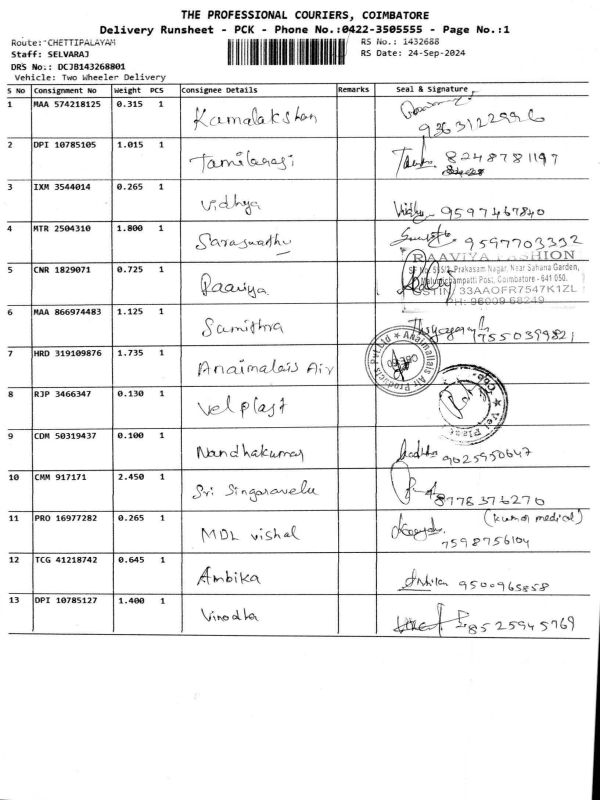 THE PROFESSIONAL COURIERS, COIMBATORE
Delivery Runsheet - PCK - Phone No.:0422-3505555 - Page No.:1
Route: CHETTIPALAYAM
RS No.: 1432688
Staff: SELVARAJ
RS Date: 24-Sep-2024
DRS No.: DCJB143268801
Vehicle: Two Wheeler Delivery
S No Consignment No Weight PCS Consignee Details Remarks Seal & Signature
1 MAA 574218125 0.315 1 Kamalakshan
2 DPI 10785105 1.015 1 Tamilarasi 8248781197
3 IXM 3544014 0.265 1 Vidhya Vidhya 9597467840
4 MTR 2504310 1.800 1 Saraswathy 9597703332
RAAVIYA FASHION
Prakasam Nagar, Near Sahana Garden,
Malumichampatti Post, Coimbatore - 641 050.
GSTIN: 33AAOFR7547K1ZL
PH: 96009 68249
5 CNR 1829071 0.725 1 Raaviya
6 MAA 866974483 1.125 1 Samithra 7550399821
7 HRD 319109876 1.735 1 Anaimalais Air
Anaimallais Air Products Pvt Ltd
8 RJP 3466347 0.130 1 Vel plast
Vel Plast
9 CDM 50319437 0.100 1 Nandhakumar 9025950647
10 CMM 917171 2.450 1 Sri Singaravelu 8778376270
11 PRO 16977282 0.265 1 MDL vishal (kumar medical)
7598756104
12 TCG 41218742 0.645 1 Ambika 9500965858
13 DPI 10785127 1.400 1 Vinodha 8525945769